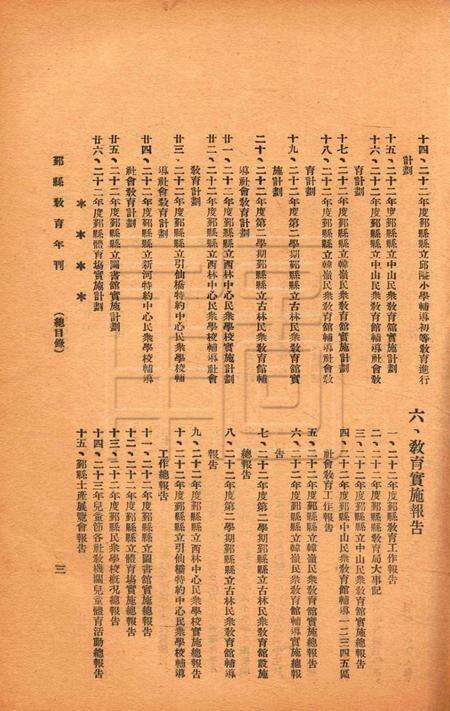 十四、二十二年度鄞縣縣立邱隘小學輔導初等教育進行
計劃
十五、二十二年度鄞縣縣立中山民衆教育館實施計劃
十六、二十二年度鄞縣縣立中山民衆教育館輔導社會教
育計劃
十七、二十二年度鄞縣縣立韓嶺民衆教育館實施計劃
十八、二十二年度鄞縣縣立韓嶺民衆教育館輔導社會教
育計劃
十九、二十二年度第二學期鄞縣縣立古林民衆教育館實
施計劃
二十、二十二年度第二學期鄞縣縣立古林民衆教育館輔
導社會教育計劃
廿一、二十二年度鄞縣縣立西林中心民衆學校實施計劃
廿二、二十二年度鄞縣縣立西林中心民衆學校輔導社會
教育計劃
廿三、二十二年度鄞縣縣立引仙橋特約中心民衆學校輔
導社會教育計劃
廿四、二十二年度鄞縣縣立新河特約中心民衆學校輔導
社會教育計劃
廿五、二十二年度鄞縣縣立圖書館實施計劃
廿六、二十二年度鄞縣體育場實施計劃
＊　＊　＊　＊
鄞縣教育年刊　（總目錄）
六、教育實施報告
一、二十二年度鄞縣教育工作報告
二、二十二年度鄞縣教育局大事記
三、二十二年度鄞縣縣立中山民衆教育館實施總報告
四、二十二年度鄞縣中山民衆教育館輔導一二三四五區
社會教育工作報告
五、二十二年度鄞縣縣立韓嶺民衆教育館實施總報告
六、二十二年度鄞縣縣立韓嶺民衆教育館輔導實施總報
告
七、二十二年度第二學期鄞縣縣立古林民衆教育館設施
總報告
八、二十二年度第二學期鄞縣縣立古林民衆教育館輔導
報告
九、二十二年度鄞縣縣立西林中心民衆學校實施總報告
十、二十二年度鄞縣縣立引仙橋特約中心民衆學校輔導
工作總報告
十一、二十二年度鄞縣縣立圖書館實施總報告
十二、二十二年度鄞縣縣立體育場實施總報告
十三、二十二年度鄞縣民衆學校概況總報告
十四、二十三年兒童節各社教機關兒童體育活動總報告
十五、鄞縣土產展覽會報告
三